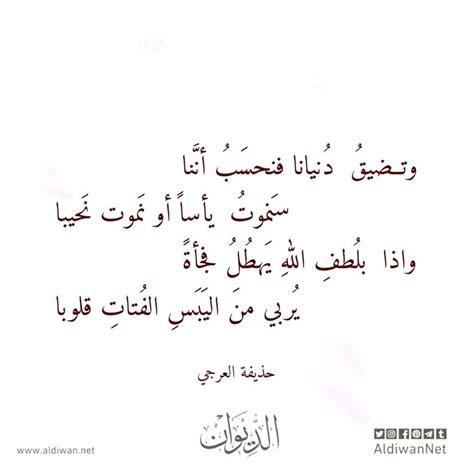 وتـضيقُ دُنيانا فنحسَبُ أنَّنا
سَنموتُ يأساً أو نَموت نَحيبا
واذا بلُطفِ اللهِ يَهطُلُ فجأةً
يُربي منَ اليَبَسِ الفُتاتِ قلوبا
حذيفة العرجي
الدِّيوَان
www.aldiwan.net
AldiwanNet